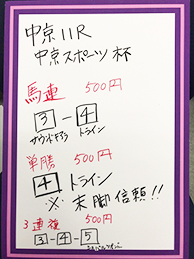 中京11R
中京スポーツ杯
馬連 500円
3-4
サウンドキアラ トライン
単勝 500円
4 トライン
※ 末脚信頼!!
3連複 500円
3-4-5